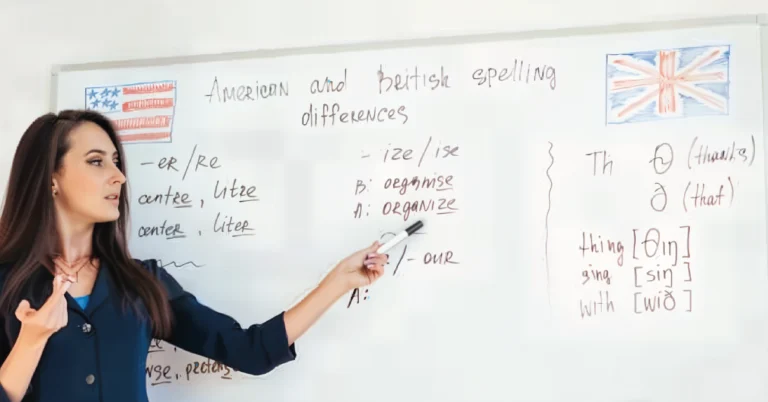 American and British spelling
differences
-er/re
centre, litre
center, liter
- ize/ise
B: organise
A: organize
/- our
A:
Th θ (thanks)
ð (that)
thing [θıŋ]
sing [siŋ]
with [wið]